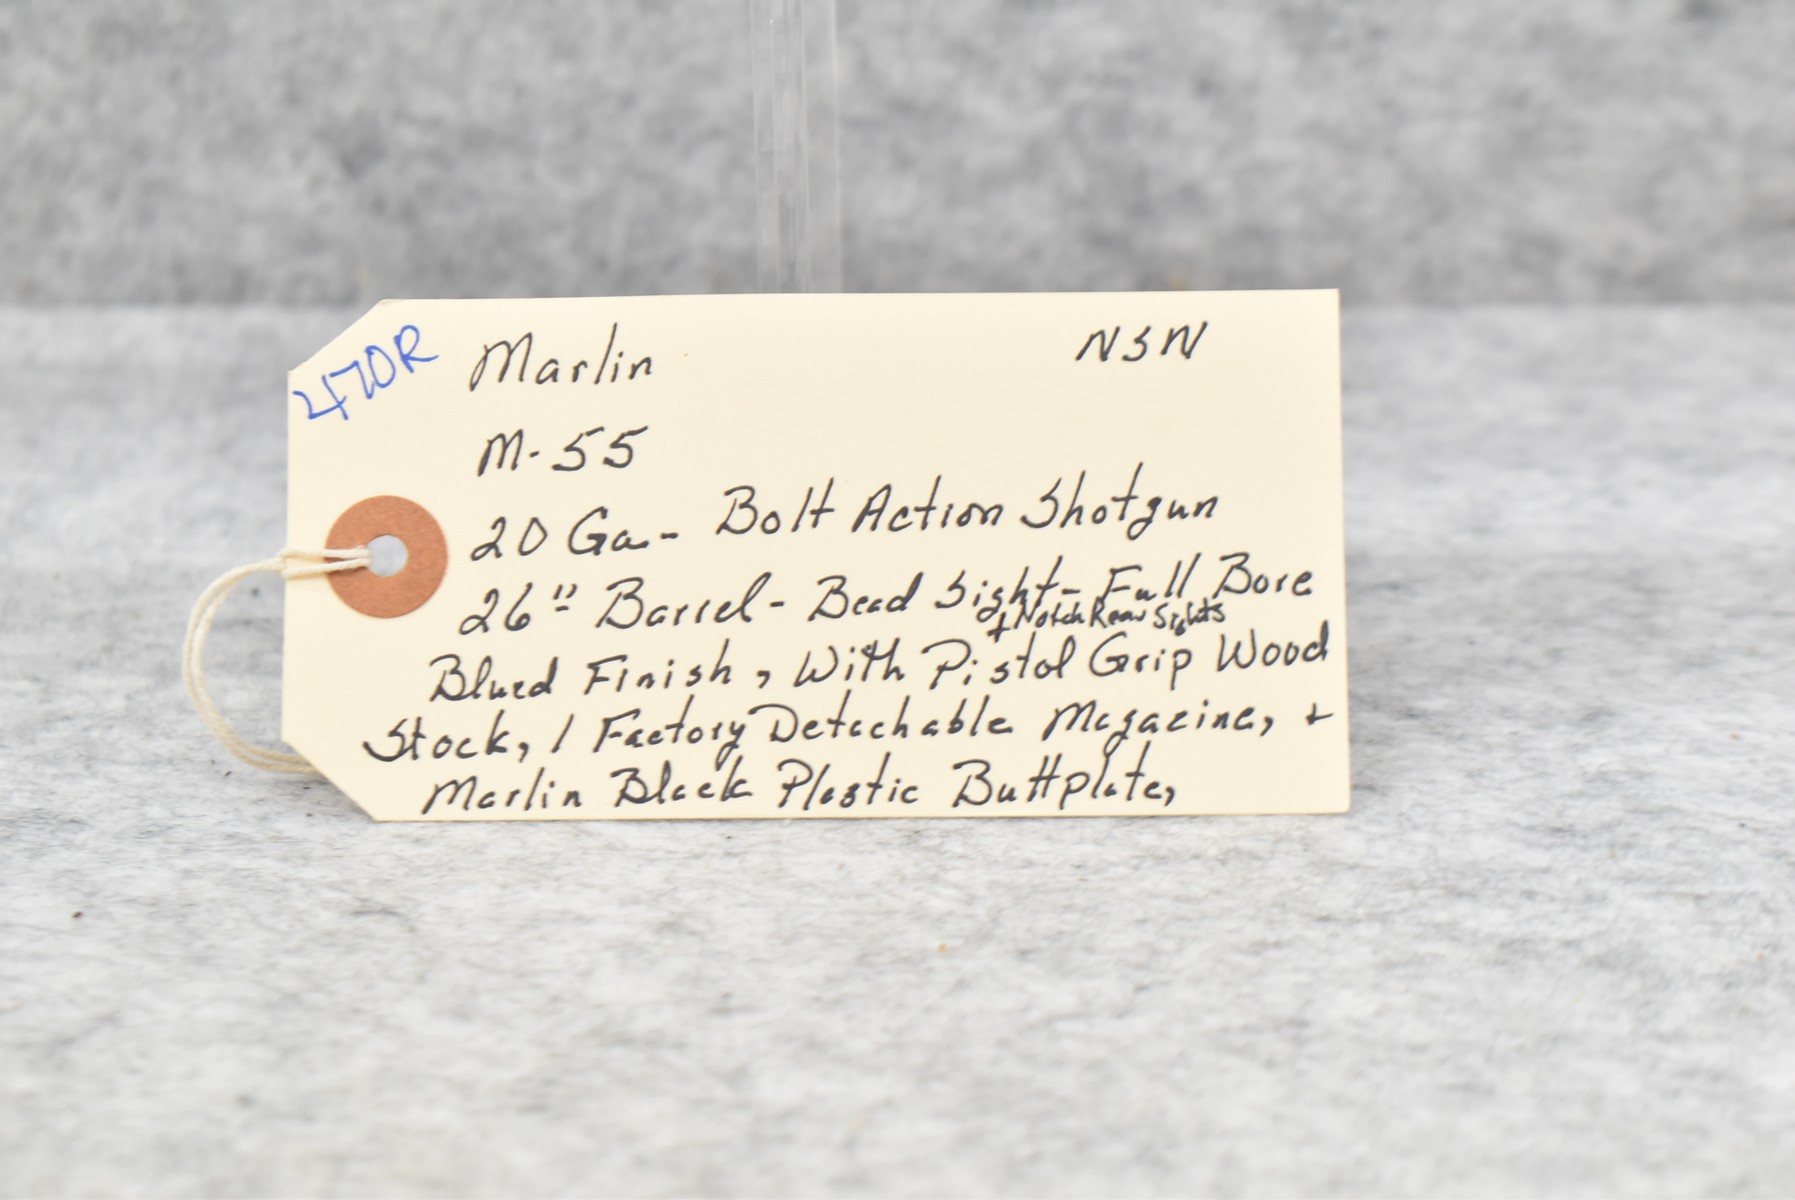 470R
Marlin NSN
M-55
20 Ga- Bolt Action Shotgun
26" Barrel- Bead Sight- Full Bore
+ Notch Rear Sights
Blued Finish, With Pistol Grip Wood
Stock, 1 Factory Detachable Magazine, +
Marlin Black Plastic Buttplate,